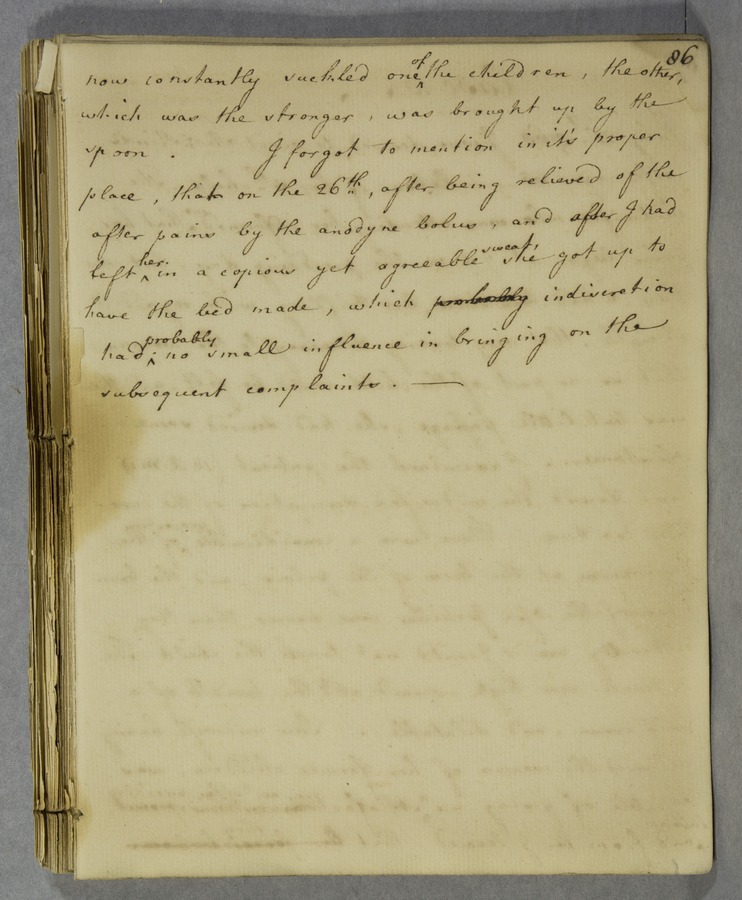 86
now constantly suckled one of the children, the other,
which was the stronger, was brought up by the
spoon. I forgot to mention in it's proper
place, that on the 26th, after being relieved of the
after pains by the anodyne bolus, and after I had
left her in a copious yet agreeable sweat, she got up to
have the bed made, which probably indiscretion
had probably no small influence in bringing on the
subsequent complaints. —